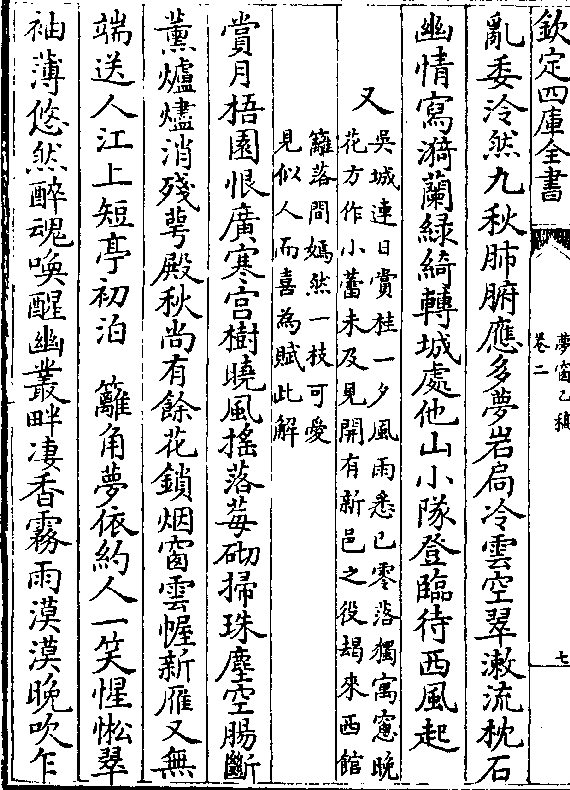 欽定四庫全書
夢窗乙稿
卷二
七
亂委冷然九秋肺腑應多夢岩扃冷雲空翠漱流枕石
幽情寫漪蘭緑綺轉城處他山小隊登臨待西風起
又
吳城連日賞桂一夕風雨悉已零落獨寓窻晚
花方作小蕾未及見開有新邑之役朅來西館
籬落間嫣然一枝可愛
見似人而喜為賦此解
賞月梧園恨廣寒宫樹曉風搖落莓砌掃珠塵空腸斷
薰爐燼消殘萼殿秋尚有餘花鎖烟窗雲幄新雁又無
端送人江上短亭初泊 籬角夢依約人一笑惺忪翠
袖薄悠然醉魂喚醒幽叢畔凄香霧雨漠漠晚吹乍